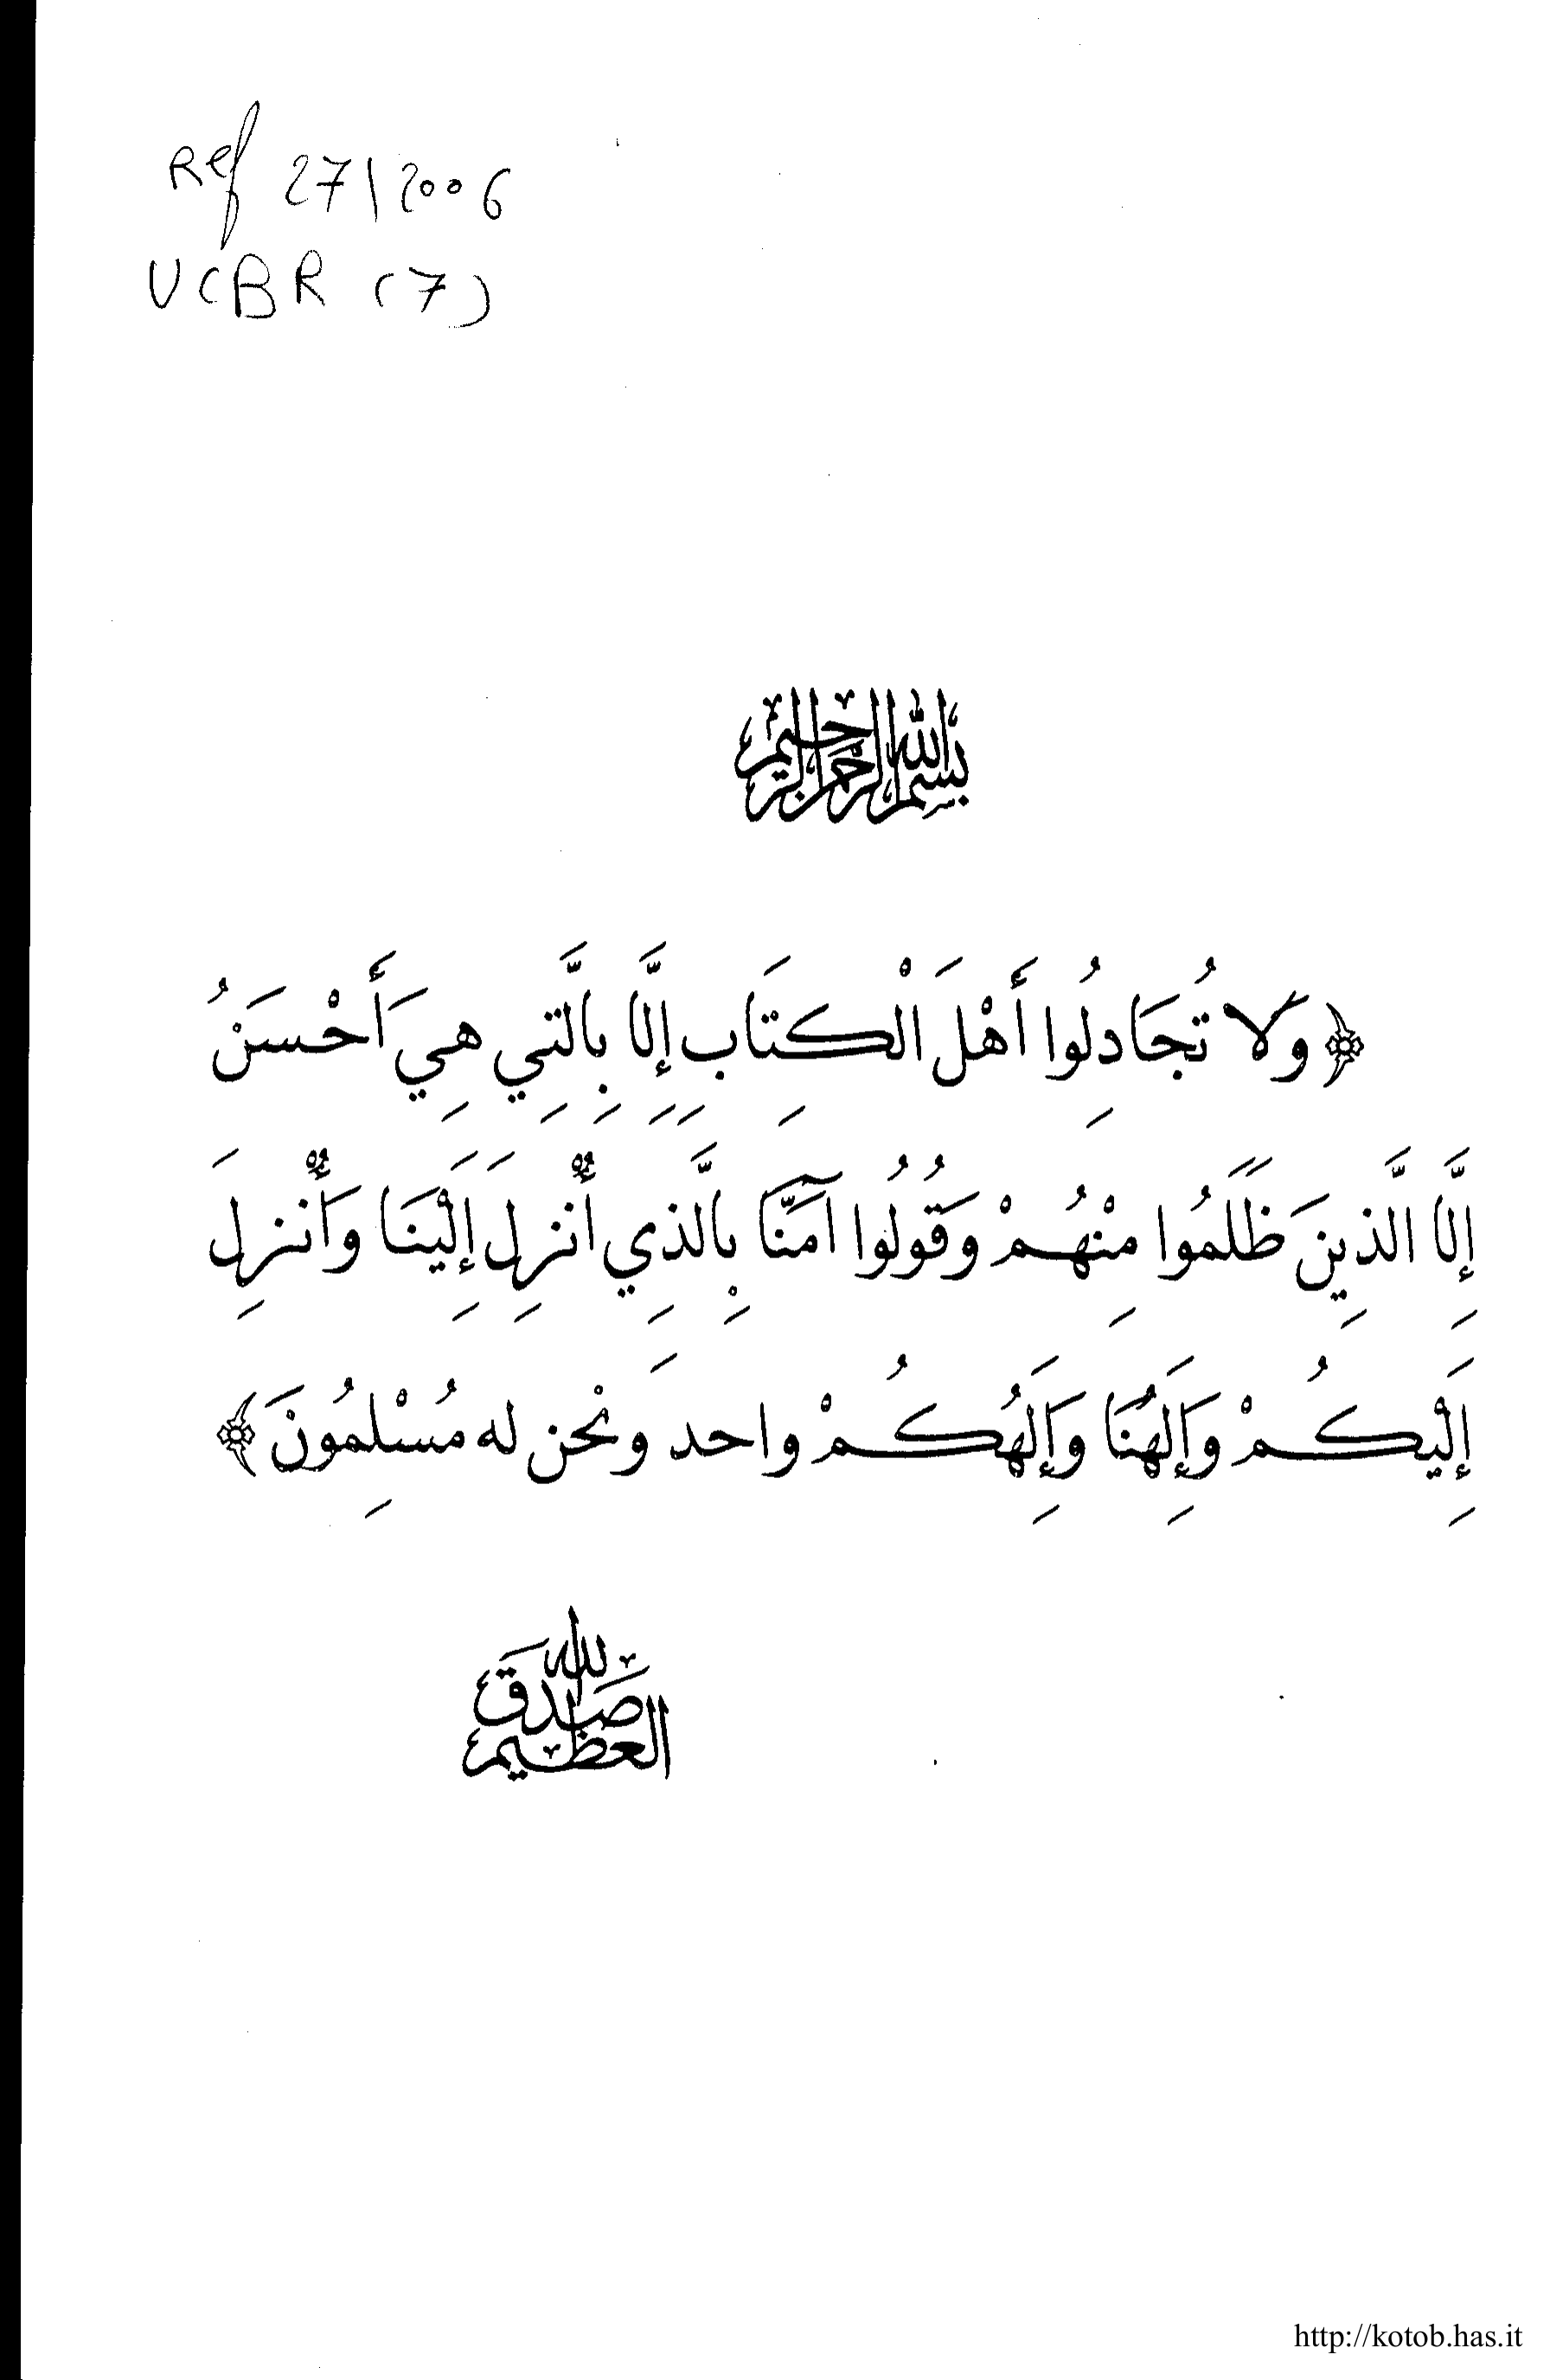 Ref 27/2006
UCBR (7)
بسم الله الرحمن الرحيم
﴿وَلَا تُجَادِلُوا أَهْلَ الْكِتَابِ إِلَّا بِالَّتِي هِيَ أَحْسَنُ
إِلَّا الَّذِينَ ظَلَمُوا مِنْهُمْ وَقُولُوا آمَنَّا بِالَّذِي أُنْزِلَ إِلَيْنَا وَأُنْزِلَ
إِلَيْكُمْ وَإِلَهُنَا وَإِلَهُكُمْ واحد ونحْن له مُسْلِمُونَ﴾
صدق الله العظيم
http://kotob.has.it